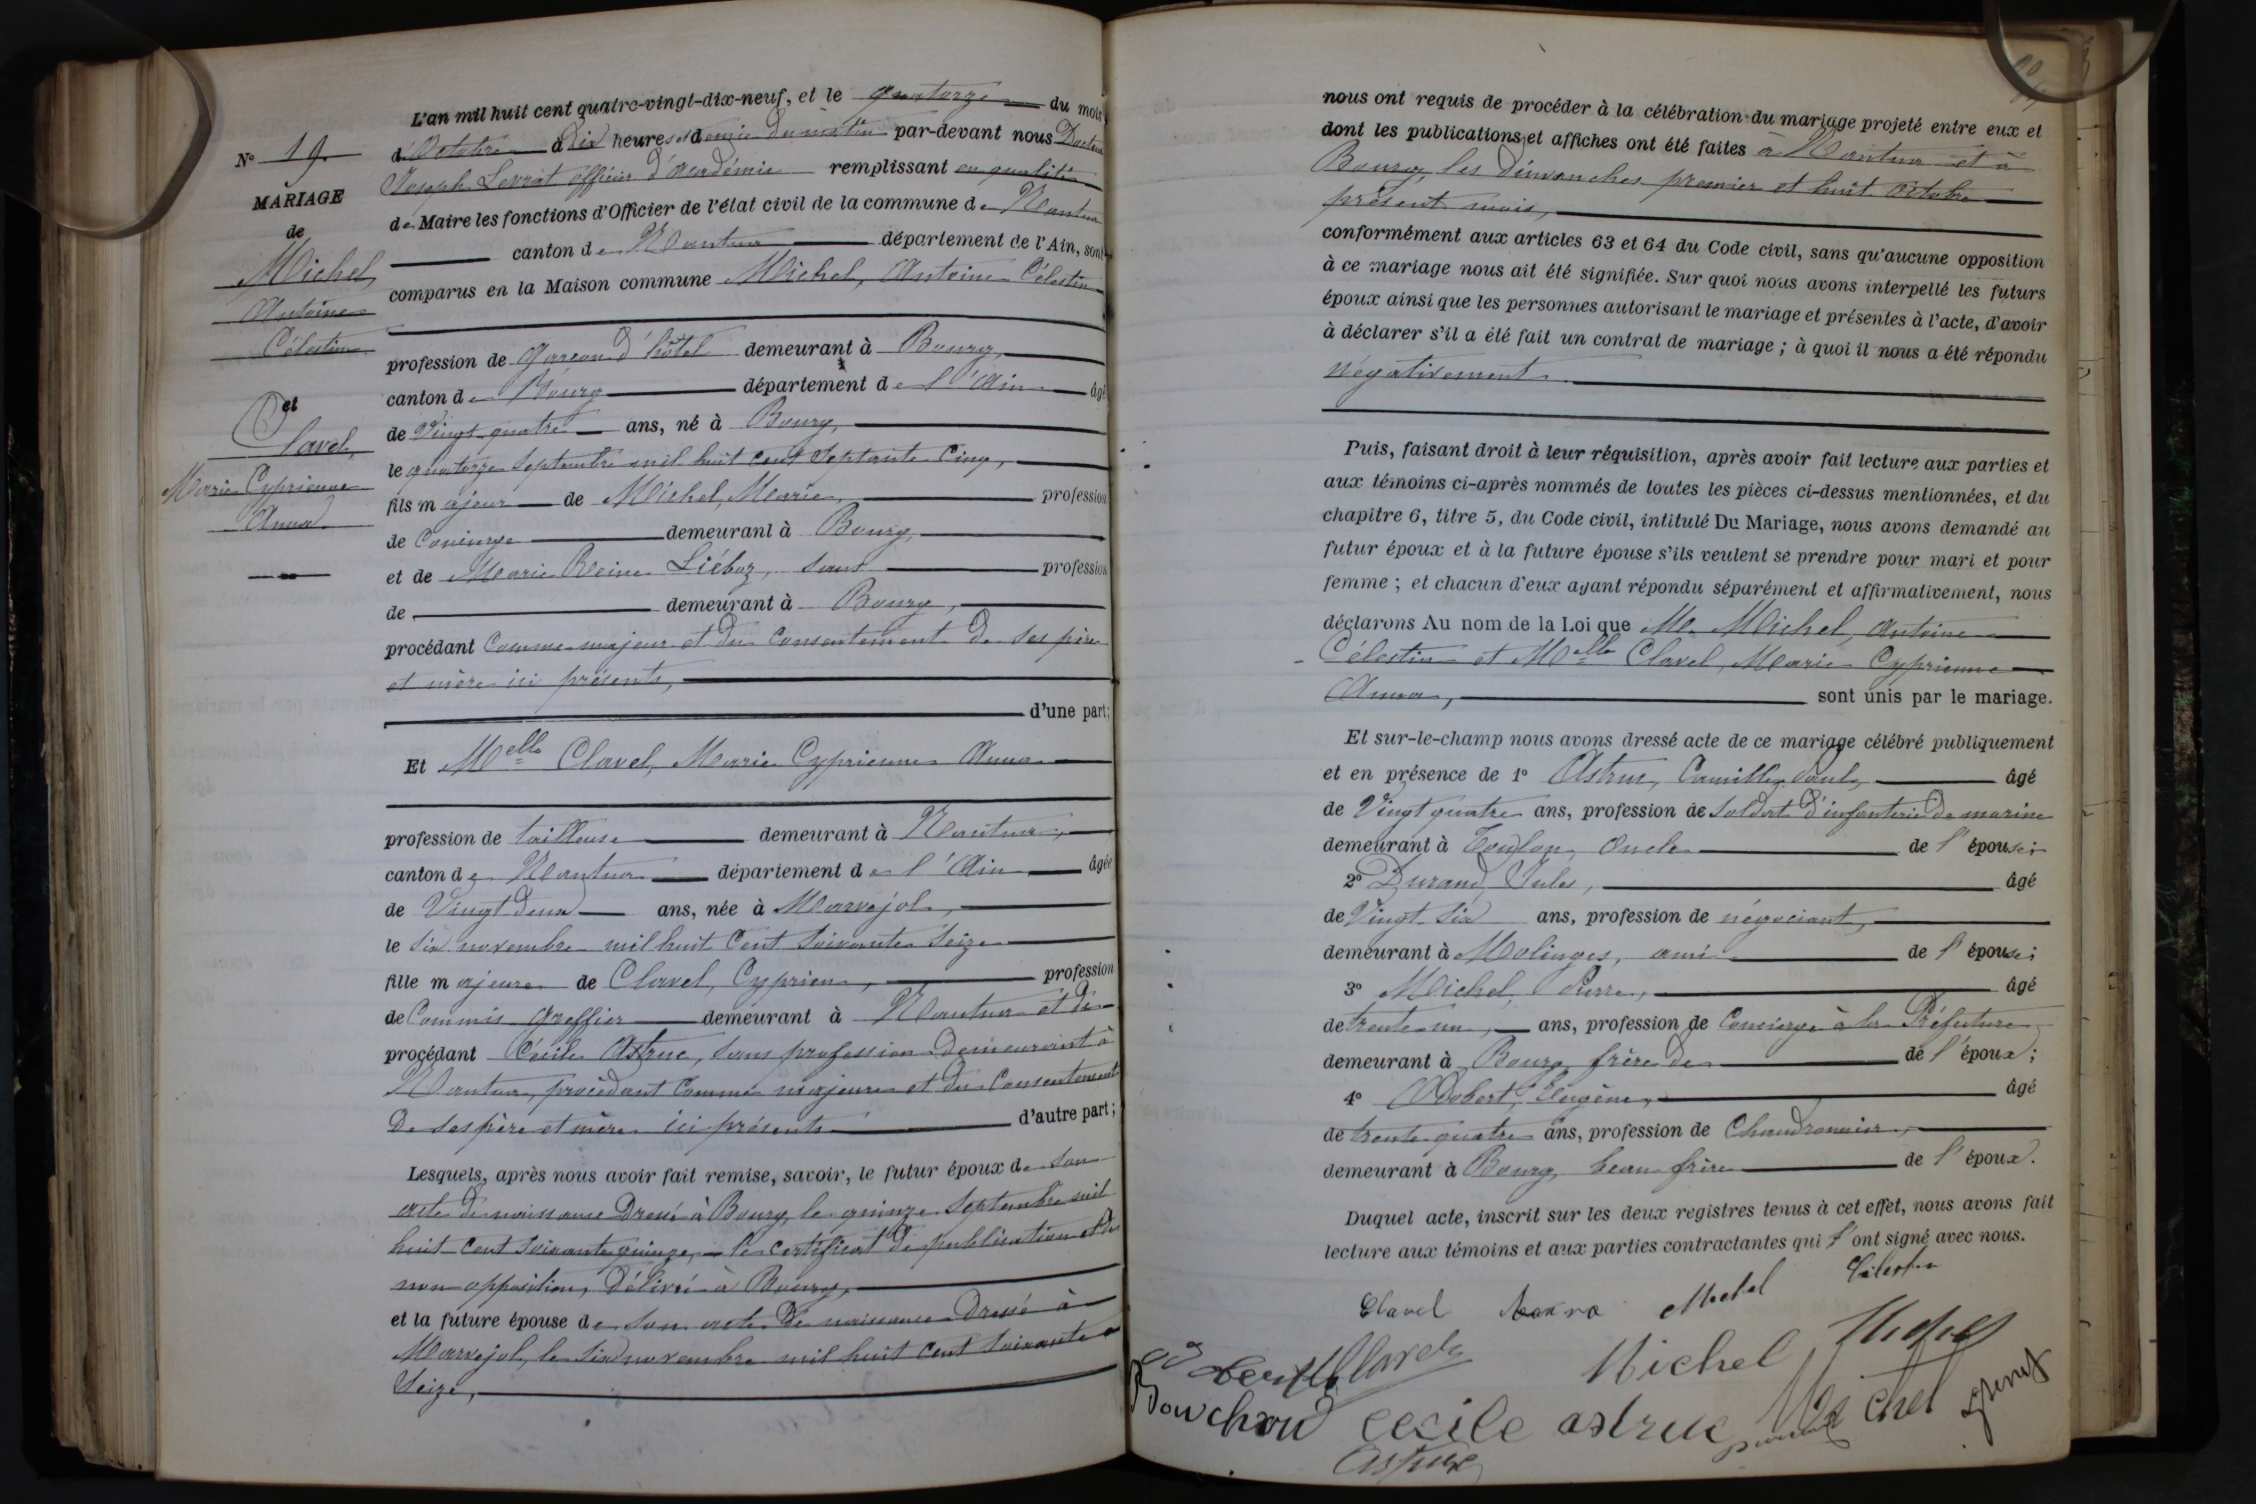 N° 19
MARIAGE
de
Michel
Antoine
Célestin
et
Clavel,
Marie Cyprienne
Anna
L'an mil huit cent quatre-vingt-dix-neuf, et le quatorze du mois
d'Octobre à dix heures et demie du matin par-devant nous Docteur
Joseph Levrat officier d'académie remplissant en qualité
de Maire les fonctions d'Officier de l'état civil de la commune de Nantua
canton de Nantua département de l'Ain, sont
comparus en la Maison commune Michel, Antoine Célestin
profession de garçon d'hôtel demeurant à Bourg,
canton de Bourg département de l'Ain âgé
de Vingt quatre ans, né à Bourg,
le quatorze Septembre mil huit cent Septante Cinq,
fils majeur de Michel, Marie, profession
de Concierge demeurant à Bourg,
et de Marie Reine Liéboz, sans profession
de demeurant à Bourg,
procédant comme majeur et du consentement de ses père
et mère ici présents,
d'une part;
Et Melle Clavel, Marie Cyprienne Anna
profession de tailleuse demeurant à Nantua,
canton de Nantua département de l'Ain âgée
de Vingt deux ans, née à Marvejol,
le six novembre mil huit cent soixante seize
fille majeure de Clavel, Cyprien, profession
de Commis greffier demeurant à Nantua et de
procédant Cécile Astruc, sans profession demeurant à
Nantua, procédant comme majeure et du consentement
de ses père et mère ici présents d'autre part;
Lesquels, après nous avoir fait remise, savoir, le futur époux de son
acte de naissance dressé à Bourg, le quinze Septembre mil
huit cent soixante quinze, le certificat de publication et de
non opposition, délivré à Bourg,
et la future épouse de son acte de naissance dressé à
Marvejol, le six novembre mil huit cent soixante
seize,
nous ont requis de procéder à la célébration du mariage projeté entre eux et
dont les publications et affiches ont été faites à Nantua et à
Bourg, les dimanches premier et huit Octobre
présent mois,
conformément aux articles 63 et 64 du Code civil, sans qu'aucune opposition
à ce mariage nous ait été signifiée. Sur quoi nous avons interpellé les futurs
époux ainsi que les personnes autorisant le mariage et présentes à l'acte, d'avoir
à déclarer s'il a été fait un contrat de mariage; à quoi il nous a été répondu
négativement.
Puis, faisant droit à leur réquisition, après avoir fait lecture aux parties et
aux témoins ci-après nommés de toutes les pièces ci-dessus mentionnées, et du
chapitre 6, titre 5, du Code civil, intitulé Du Mariage, nous avons demandé au
futur époux et à la future épouse s'ils veulent se prendre pour mari et pour
femme; et chacun d'eux ayant répondu séparément et affirmativement, nous
déclarons Au nom de la Loi que Mr Michel, Antoine
Célestin et Melle Clavel, Marie Cyprienne
Anna, sont unis par le mariage.
Et sur-le-champ nous avons dressé acte de ce mariage célébré publiquement
et en présence de 1° Astruc, Camille, Paul, âgé
de Vingt quatre ans, profession de Soldat d'infanterie de marine
demeurant à Toulon, oncle de l'épouse;
2° Durand Jules, âgé
de Vingt Six ans, profession de négociant,
demeurant à Molinges, ami de l'épouse;
3° Michel, Pierre, âgé
de trente un, ans, profession de Concierge à la Préfecture
demeurant à Bourg frère de de l'époux;
4° Odobert, Eugène, âgé
de trente quatre ans, profession de Chaudronnier,
demeurant à Bourg, beau frère de l'époux.
Duquel acte, inscrit sur les deux registres tenus à cet effet, nous avons fait
lecture aux témoins et aux parties contractantes qui l'ont signé avec nous.
Clavel Anna Michel Célestin
Clavel Michel Michel
Bouchard cecile astruc Michel
Astruc